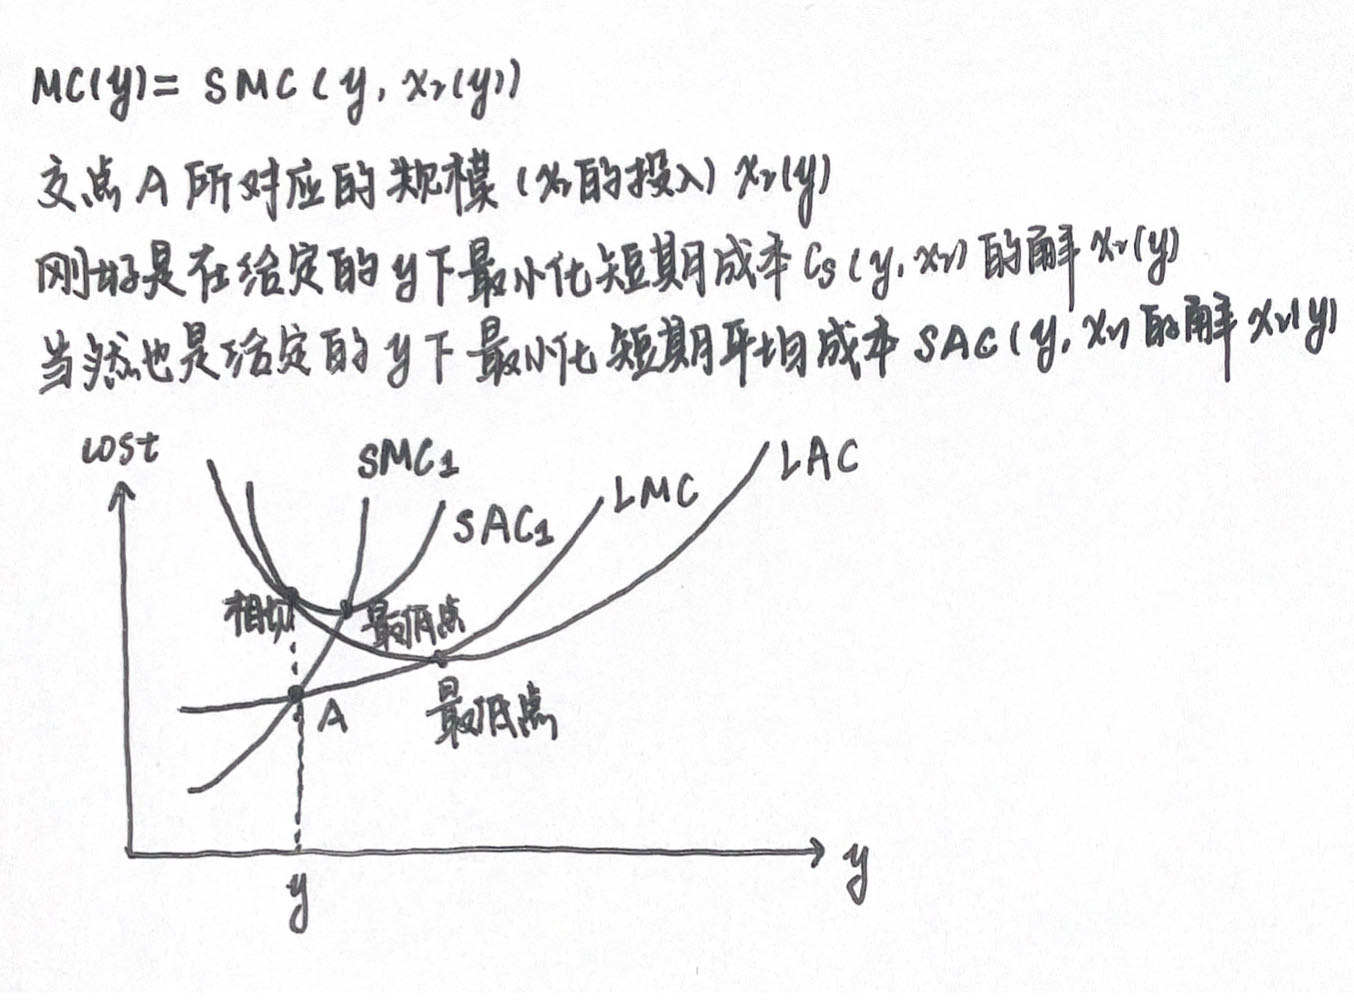 MC(y)= SMC(y, x₂(y))
交点A所对应的规模(x₂的投入)x₂(y)
刚好是在给定的y下最小化短期成本Cs(y,x₂)的解x₂(y)
当然也是给定的y下最小化短期平均成本SAC(y,x₂)的解x₂(y)
cost
SMC1
SAC1
LMC
LAC
相切
最低点
A
最低点
y
y